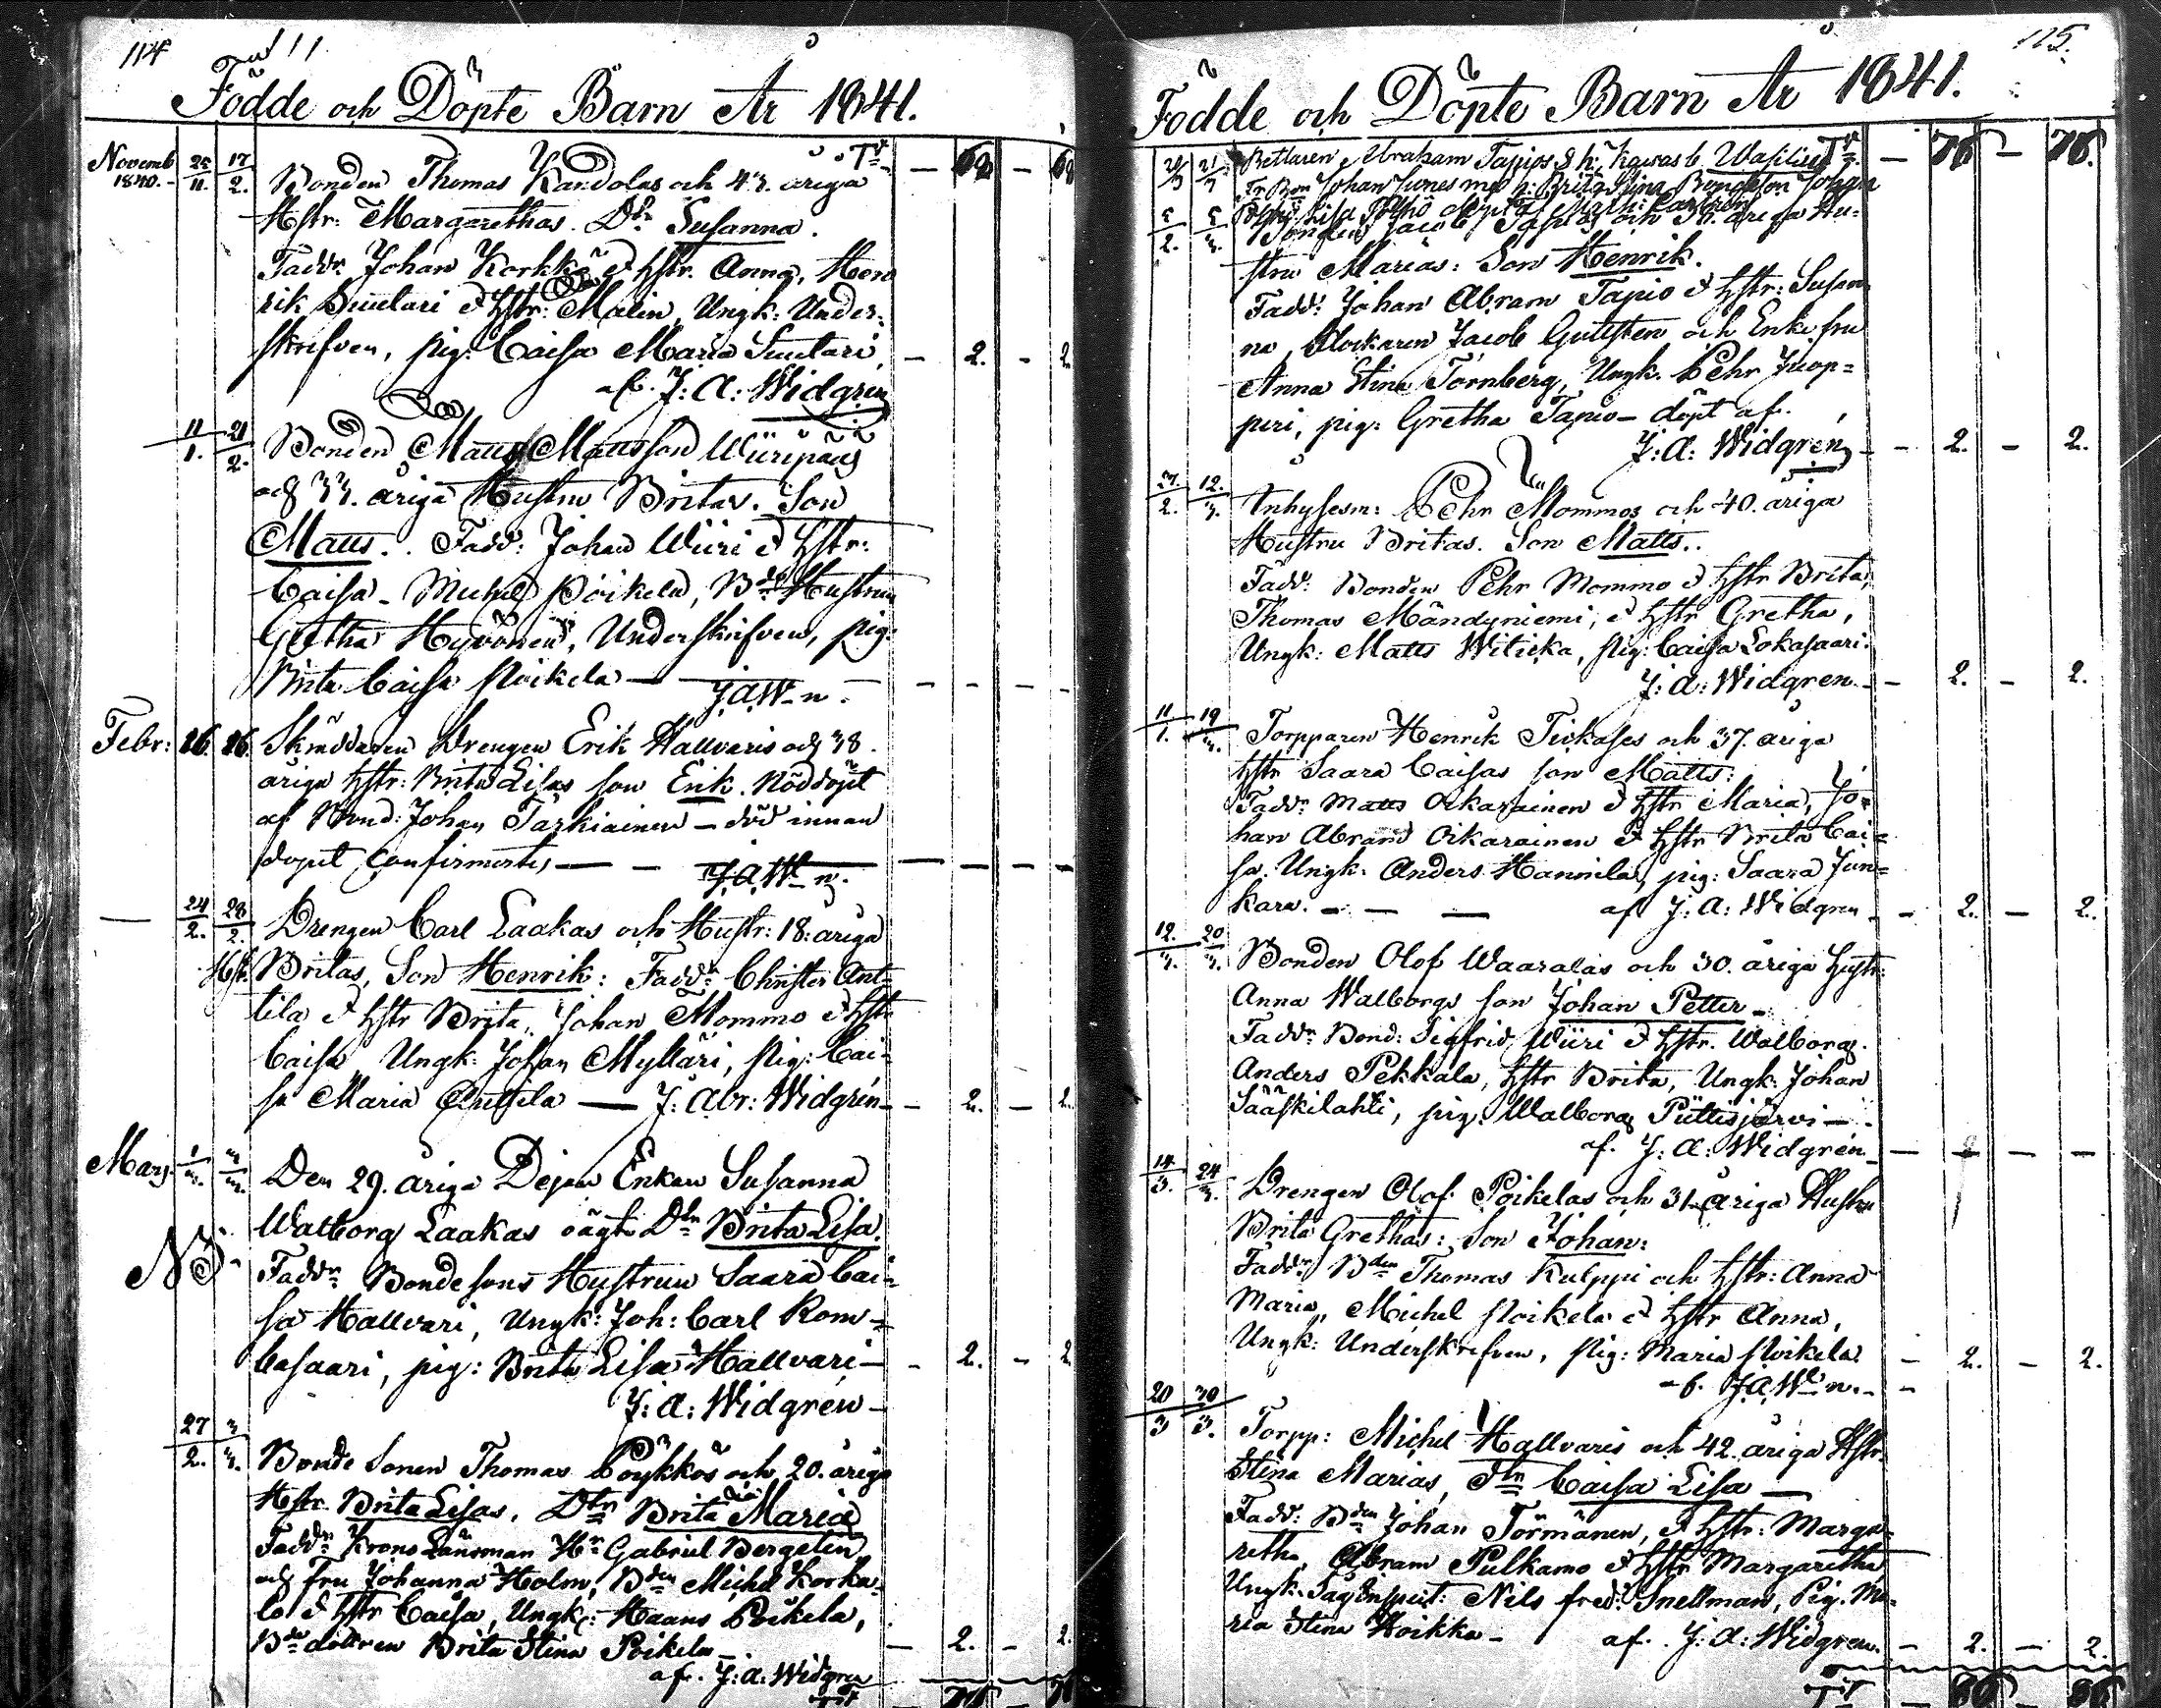 114
Födde och Döpte Barn År 1841.
Novemb 25 17 Tr
1840. 11. 2. Bonden Thomas Kandolas och 43. åriga — 68 — 68
Hstr: Margarethas. Dtr Susanna.
Faddr Johan Korkko & Hstr. Anna, Hen
rik Suutari & Hstr: Malin, Ungk: Under-
skrifven, pig: Caisa Maria Suutari, — 2. — 2
af. J: A: Widgren
11 21
1. 2. Bonden Matts Mattsson Wiiripääs
och 33. åriga Hustru Britas. Son
Matts.. Fadd: Johan Wiiri & Hstr:
Caisa - Michel Poikela, Bds Hustrun
Gretha Hyvönen, Underskrifven, pig:
Brita Caisa Poikela — J.A.W-n.
Febr: 26. 26. Skräddaren Drengen Erik Hallvaris och 38.
åriga Hstr: Brita Lisas son Erik. Nöddöpt
af Bond: Johan Tarkiainen — död innan
dopet confirmertes — — J.A.W-n.
— 24 28
2. 2. Drengen Carl Laakas och Hustr: 18: åriga
Britas, Son Henrik: Faddr Christer Ant-
tila & Hstr Brita, Johan Mommo & Hstr
Caisa, Ungk: Johan Myllari, Pig: Cai-
sa Maria Anttila — J: Abr: Widgren — 2. — 2.
Mars 1 3
3. 3. Den 29. åriga Dejan Enkan Susanna
Walborg Laakas oägt. Dtr Brita Lisa.
NB. Faddr Bondesons Hustrun Saara Cai-
sa Hallvari, Ungk: Joh: Carl Rom-
basaari, pig: Brita Lisa Hallvari — 2. — 2
J: A: Widgren —
27 3
2. 3. Bonde Sonen Thomas Pöykkös och 20. åriga
Hstr. Brita Lisas. Dtr Brita Maria
Faddr Krons Länsman Hr Gabriel Bergelin
och Fru Johanna Holm, Bden Michel Korka-
lo & Hstr Caisa, Ungk: Haans Poikela,
Bde dottren Brita Stina Poikela — — 2. — 2.
af. J: A: Widgren
115.
Födde och Döpte Barn År 1841.
Tr — 76 — 76.
Bettlaren Abraham Tapios & h: Kaisas b. Wasilius
Johan Junes med h: Brita Stina
5 5
2. 3. Bonden Jacob Tapios och åriga Hu-
stru Marias: Son Henrik.
Fadd: Johan Abram Tapio & Hstr: Susan-
na, Klockaren Jacob Gullsten och Enke fru
Anna Stina Törnberg, Ungk. Pehr Juop-
peri, pig: Gretha Tapio — döpt af.
J: A: Widgren — 2. — 2.
12.
2. 3. Inhysesm: Pehr Mommos och 40. åriga
Hustru Britas. Son Matts..
Fadd: Bonden Pehr Mommo & Hstr Brita,
Thomas Mändyniemi, & Hstr Gretha,
Ungk: Matts Witicka, Pig: Caisa Lokasaari.
J: A: Widgren. — 2. — 2.
11 19
1. 3. Torpparen Henrik Tickases och 37. åriga
Hstr Saara Caisas son Matts:
Faddr Matts Oikarainen & Hstr Maria, Jo-
han Abram Oikarainen & Hstr Brita Cai-
sa. Ungk: Anders Hannila, pig: Saara Jun-
kara. — — — af J: A: Widgren — 2. — 2.
12. 20
3. 3. Bonden Olof Waaralas och 30. åriga Hustr:
Anna Walborgs son Johan Petter —
Faddr Bond: Sigfrid Wiiri & Hstr. Walborg.
Anders Pekkala, Hstr Brita, Ungk: Johan
Sääskilahti, pig: Walborg Püttisjärvi —
af. J: A: Widgren —
14 24
3. 3. Drengen Olof Poikelas och 31. åriga Hustru
Brita Grethas: Son Johan:
Faddr Bden Thomas Kulppi och Hstr: Anna
Maria, Michel Poikela & Hstr Anna,
Ungk: Underskrifven, Pig: Maria Poikela. — 2. — 2.
af. J.A.W-n. —
20 30
3 3. Torpp: Michel Hallvaris och 42. åriga Hstr.
Stina Marias, Dtr Caisa Lisa —
Fadd: Bden Johan Törmänen, & Hstr: Marga-
retha, Abram Pulkamo & Hstr Margaretha,
Ungk: Såg Inspect: Nils fredr: Snellman, Pig. Ma-
ria Stina Koikka — af. J: A: Widgren. — 2. — 2.